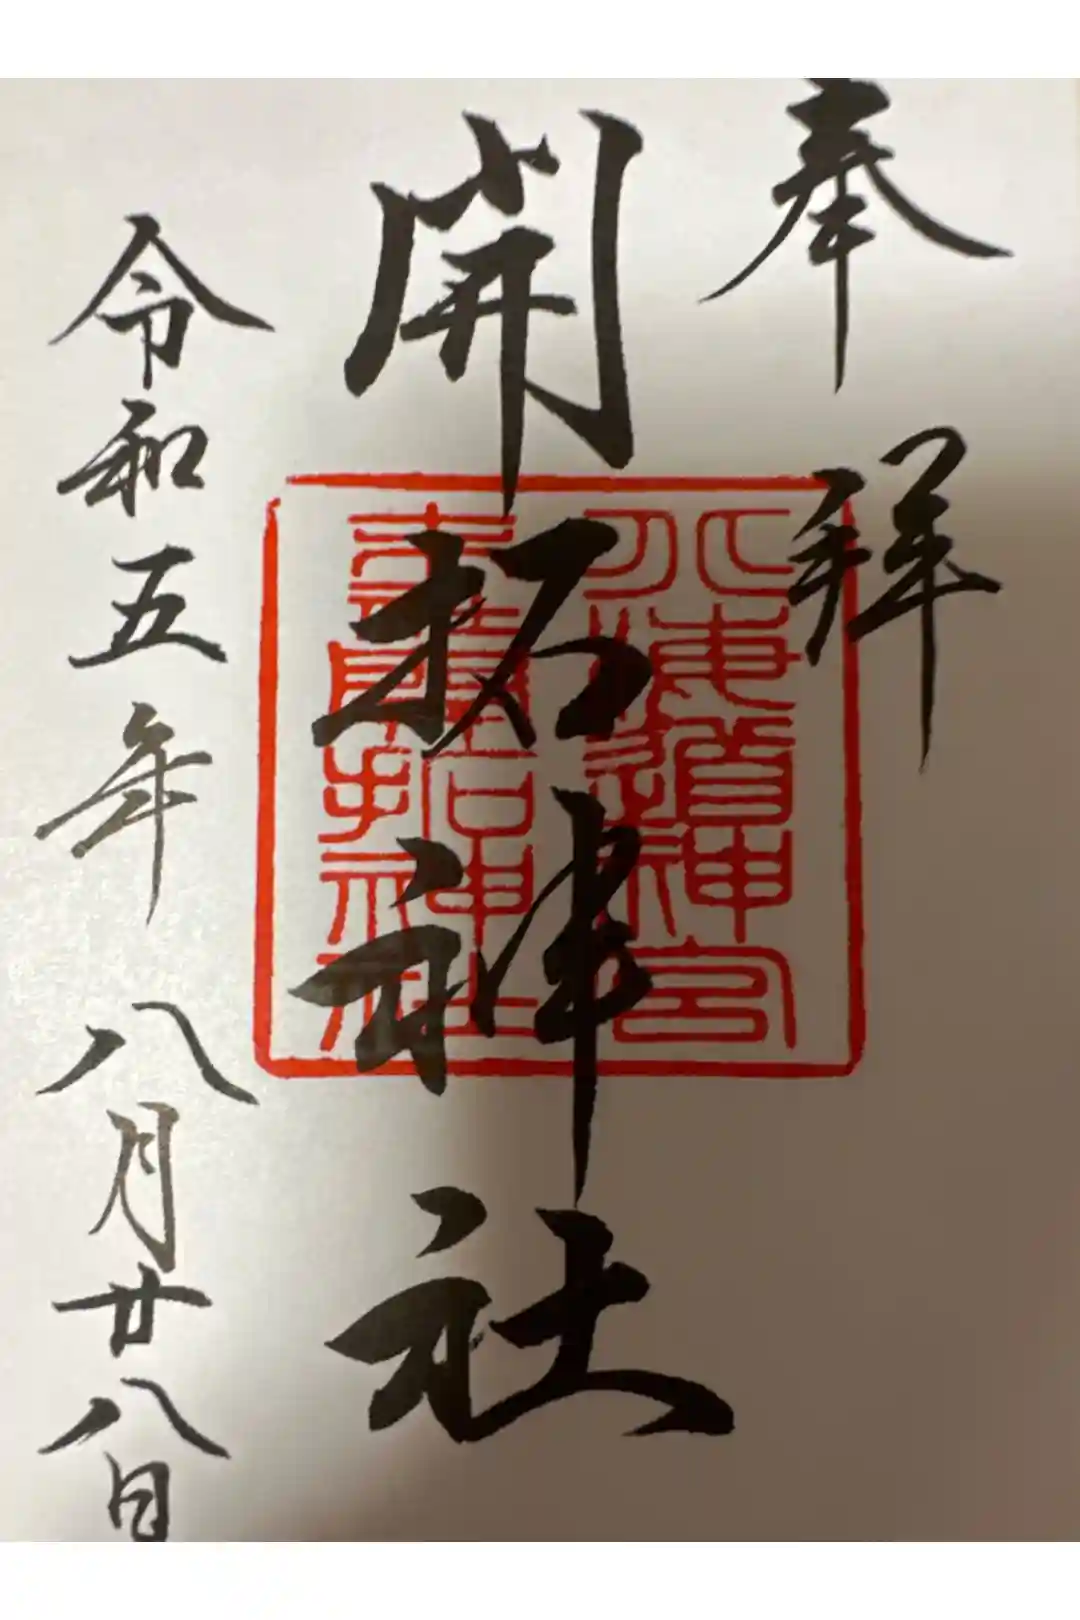 奉拜
開拓神社
北海道神宮
末社開拓神社
令和五年八月廿八日